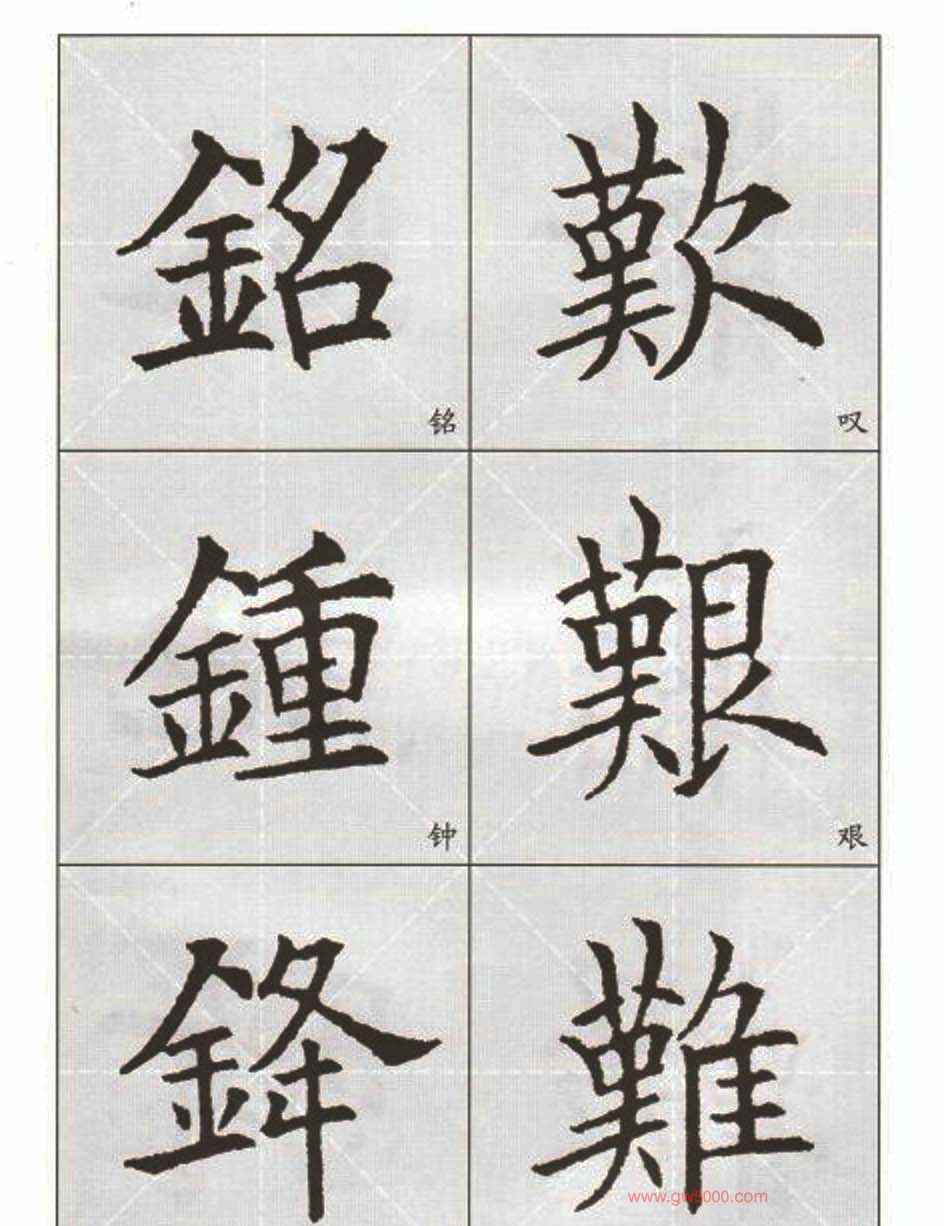 銘 歎
铭 叹
鍾 艱
钟 艰
鋒 難
www.gw5000.com